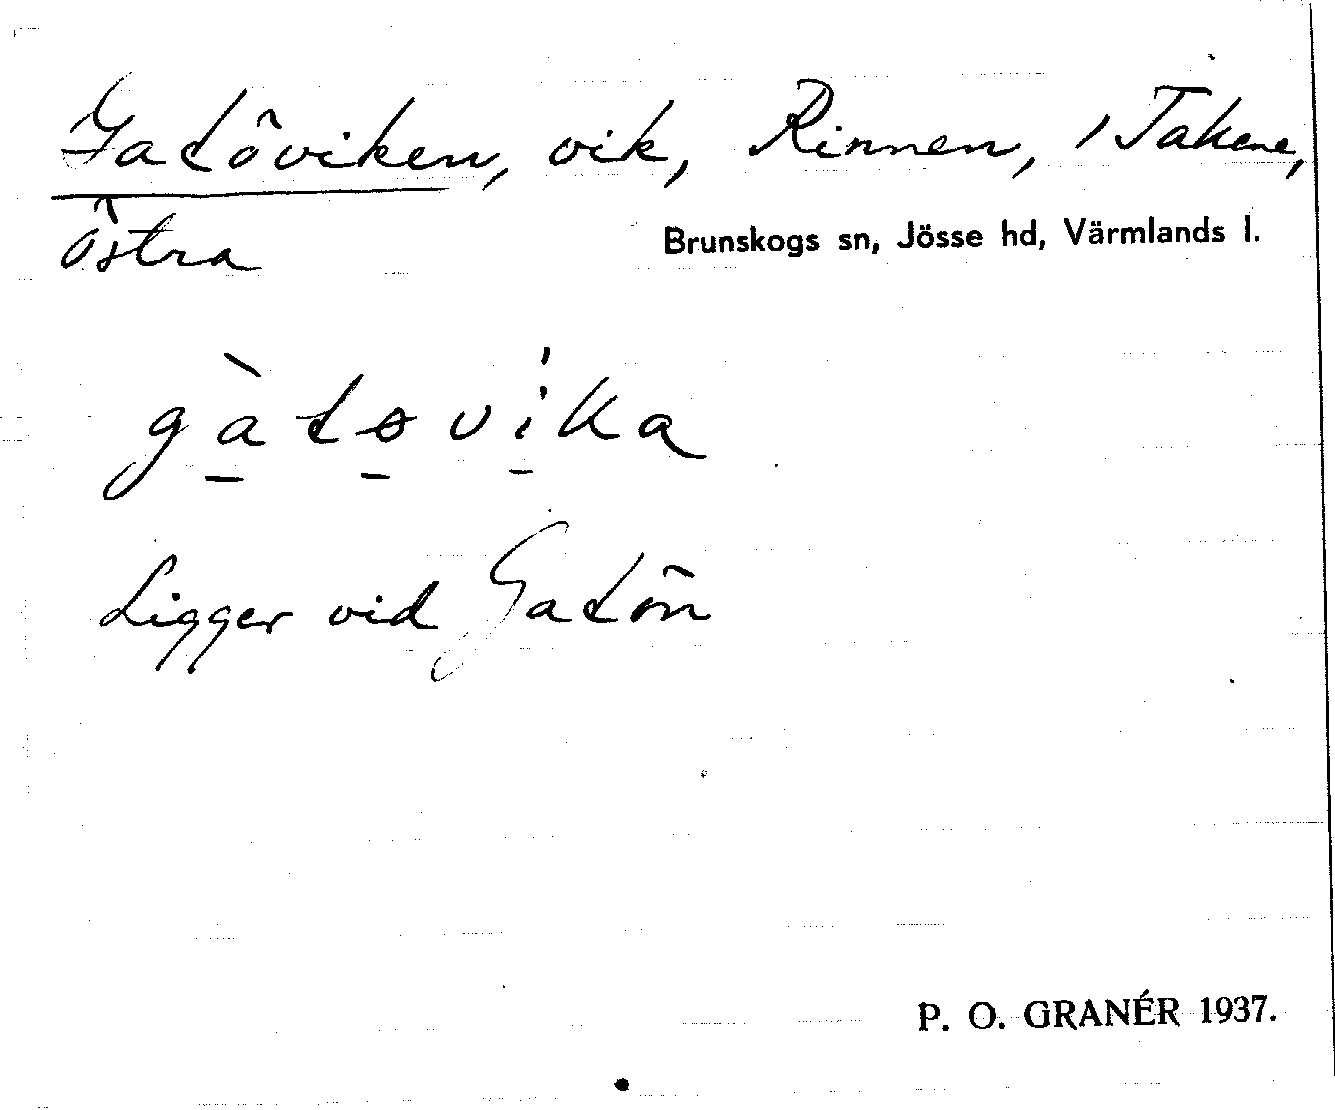 Gatöviken, vik, Rinnen, / Takene,
Östra
Brunskogs sn, Jösse hd, Värmlands l.
gàtøvika
Ligger vid Gatön
P. O. GRANÉR 1937.